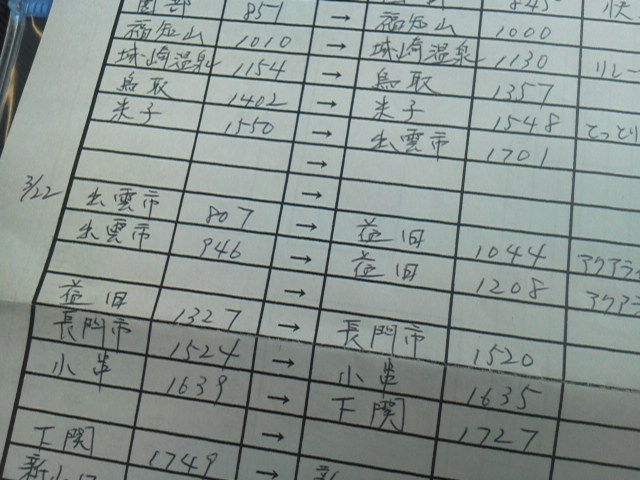 845 快
園部 851 → 福知山 1000
福知山 1010 → 城崎温泉 1130 リレー
城崎温泉 1154 → 鳥取 1357
鳥取 1402 → 米子 1548 とっとり
米子 1550 → 出雲市 1701
→
→
3/22 出雲市 807 → 益田 1044 アクアラ
出雲市 946 → 益田 1208 アクアラ
→
益田 1327 → 長門市 1520
長門市 1524 → 小串 1635
小串 1639 → 下関 1727
→
下関 1749 → 新